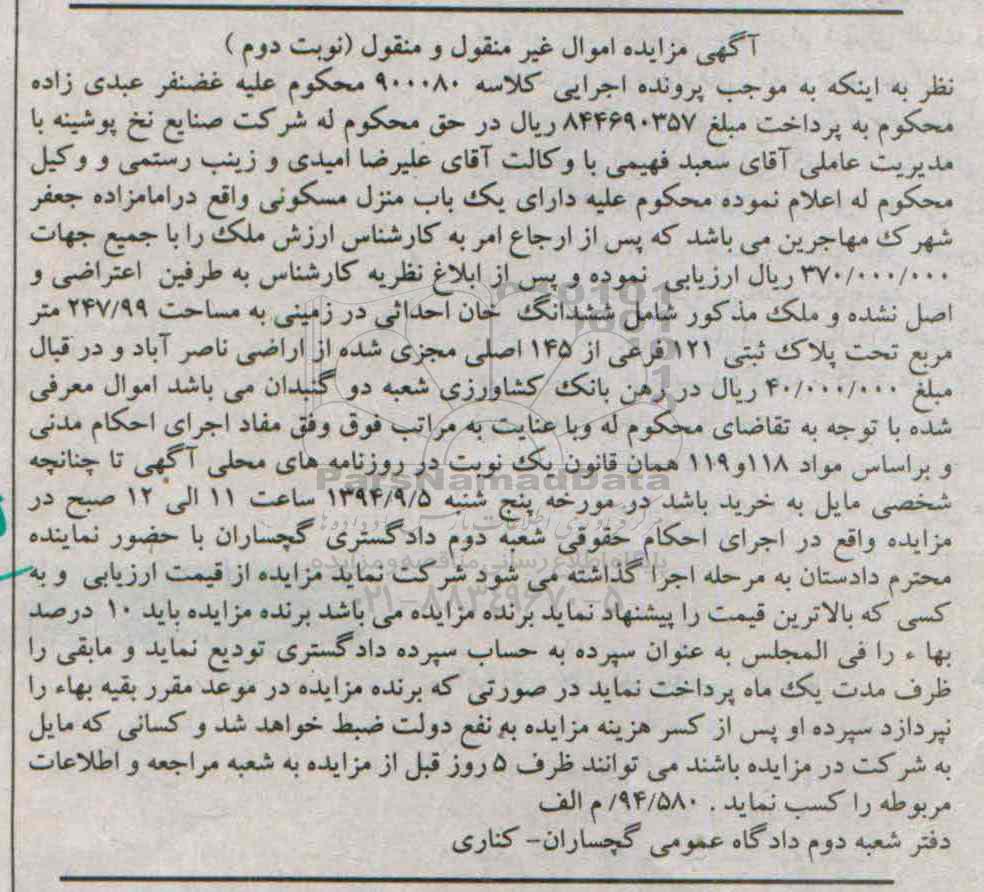 آگهی مزایده اموال غیر منقول و منقول (نوبت دوم )
نظر به اینکه به موجب پرونده اجرایی کلاسه ۹۰۰۰۸۰ محکوم علیه غضنفر عبدی زاده
محکوم به پرداخت مبلغ ۸۴۴۶۹۰۳۵۷ ریال در حق محکوم له شرکت صنایع نخ پوشینه با
مدیریت عاملی آقای سعید فهیمی با وکالت آقای علیرضا امیدی و زینب رستمی و وکیل
محکوم له اعلام نموده محکوم علیه دارای یک باب منزل مسکونی واقع درامامزاده جعفر
شهرک مهاجرین می باشد که پس از ارجاع امر به کارشناس ارزش ملک را با جمیع جهات
۳۷۰/۰۰۰/۰۰۰ ریال ارزیابی نموده و پس از ابلاغ نظریه کارشناس به طرفین اعتراضی و
اصل نشده و ملک مذکور شامل ششدانگ خان احداثی در زمینی به مساحت ۲۴۷/۹۹ متر
مربع تحت پلاک ثبتی ۱۲۱ فرعی از ۱۴۵ اصلی مجزی شده از اراضی ناصر آباد و در قبال
مبلغ ۴۰/۰۰۰/۰۰۰ ریال در رهن بانک کشاورزی شعبه دو گنبدان می باشد اموال معرفی
شده با توجه به تقاضای محکوم له وبا عنایت به مراتب فوق وفق مفاد اجرای احکام مدنی
و براساس مواد ۱۱۸و۱۱۹ همان قانون یک نوبت در روزنامه های محلی آگهی تا چنانچه
ParsNamadData
شخصی مایل به خرید باشد در مورخه پنج شنبه ۱۳۹۴/۹/۵ ساعت ۱۱ الی ۱۲ صبح در
مزایده واقع در اجرای احکام حقوقی شعبه دوم دادگستری گچساران با حضور نماینده
پایگاه اطلاع رسانی مناقصه و مزایده
محترم دادستان به مرحله اجرا گذاشته می شود شرکت نماید مزایده از قیمت ارزیابی و به
۰۲۱-۸۸۳۴۹۶۷۰-۵
کسی که بالاترین قیمت را پیشنهاد نماید برنده مزایده می باشد برنده مزایده باید ۱۰ درصد
بها ء را فی المجلس به عنوان سپرده به حساب سپرده دادگستری تودیع نماید و مابقی را
ظرف مدت یک ماه پرداخت نماید در صورتی که برنده مزایده در موعد مقرر بقیه بهاء را
نپردازد سپرده او پس از کسر هزینه مزایده به نفع دولت ضبط خواهد شد و کسانی که مایل
به شرکت در مزایده باشند می توانند ظرف ۵ روز قبل از مزایده به شعبه مراجعه و اطلاعات
مربوطه را کسب نماید . ۹۴/۵۸۰/ م الف
دفتر شعبه دوم دادگاه عمومی گچساران- کناری